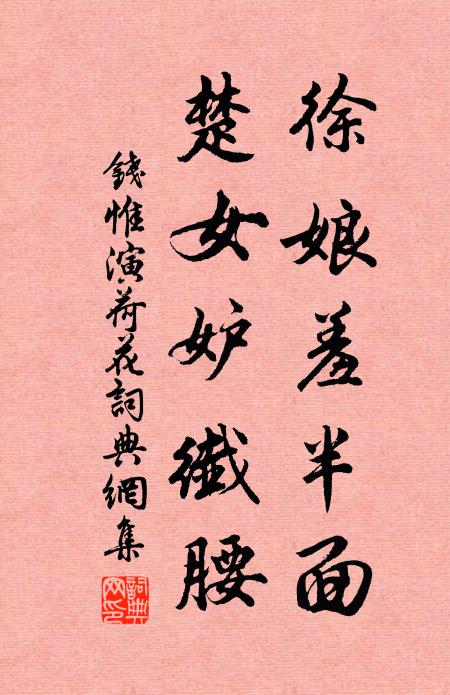 徐娘羞半面
楚女妒纖腰
錢惟演荷花詞典網集
詞典網印